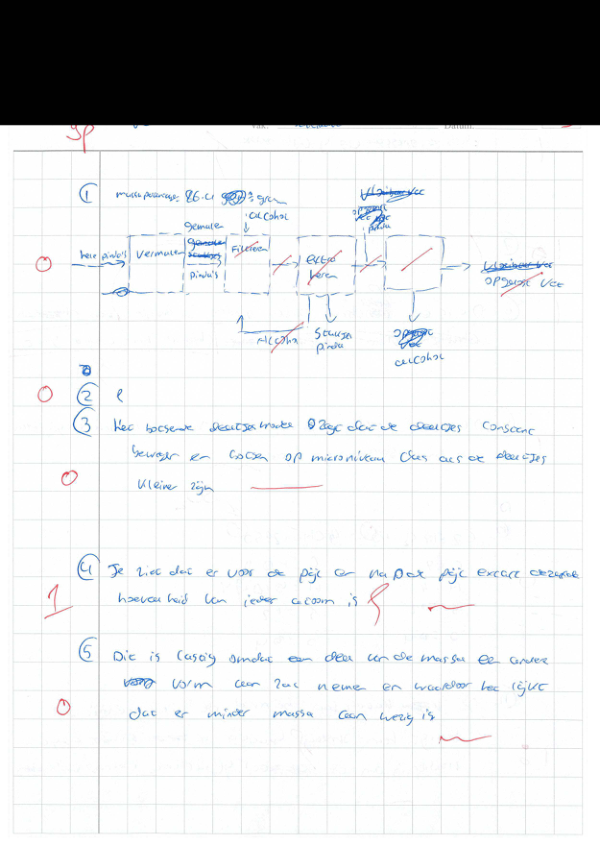 9p
Vak:
Datum:
① massapercentage: 26.4 gram
gemalen
alcohol
hele pinda's
Vermalen
pinda's
Filtreren
extraheren
pinda
opgelost vet
Alcohol
pinda
alcohol
0
0
② e
③ het botsende deeltjes model zegt dat de deeltjes constant
bewegen en botsen op microniveau dus als de deeltjes
kleiner zijn
0
④ Je ziet dat er voor de pijl en na de pijl exact dezelfde
hoeveelheid van ieder atoom is
1
⑤ Dit is lastig omdat een deel van de massa een andere
vorm aan zal nemen en waardoor het lijkt
dat er minder massa aan wezig is
0